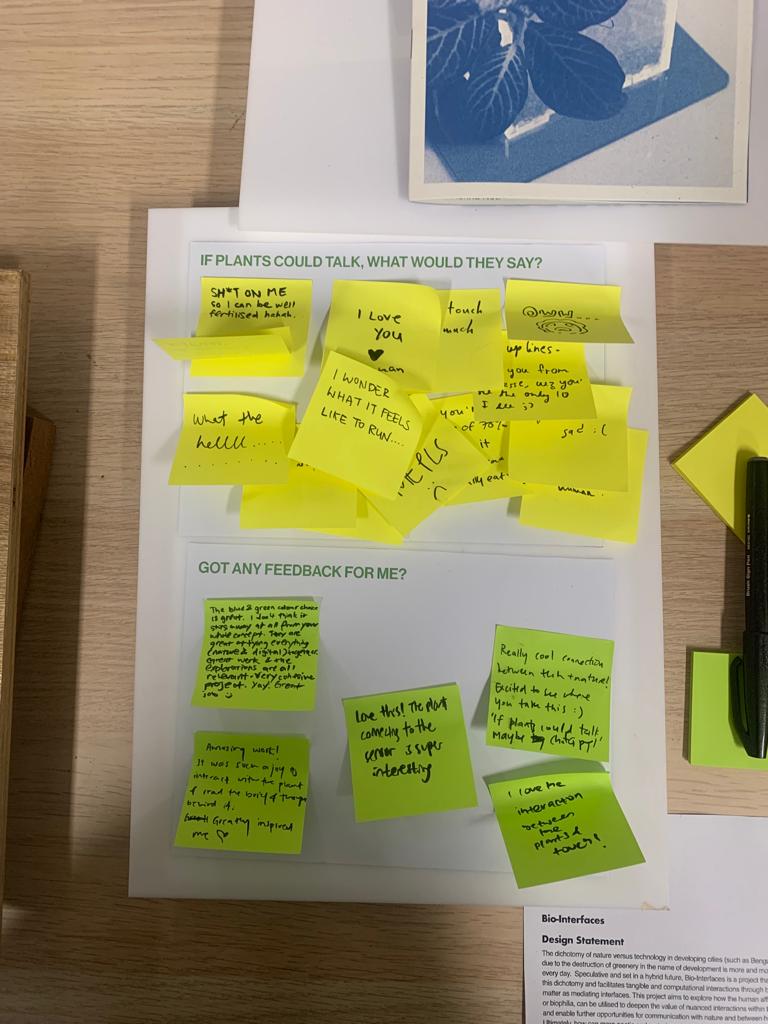 IF PLANTS COULD TALK, WHAT WOULD THEY SAY?
SH*T ON ME
so I can be well
fertilised hahah.
I LOVE
YOU
♥
touch
much
OWH....
up lines-
you from
the only 10
I see ;)
I WONDER
WHAT IT FEELS
LIKE TO RUN....
What the
hellll.....
.........
you'll
of 70%
it
PLS
:(
sad :(
human.
GOT ANY FEEDBACK FOR ME?
The blue & green colour choice
is great. I don't think it
strays away at all from your
whole concept. They are
great at tying everything
(nature & digital) together.
Great work & the
explorations are all
relevant. Very cohesive
project. Yay. Great
job :)
Amazing work!
It was such a joy to
interact with the plant
& read the brief & things
behind it.
Greatly inspired
me ♡
Love this! The plant
connecting to the
sensor is super
interesting
Really cool connection
between tech & nature!
Excited to see where
you take this :)
'If plants could talk'
Maybe chatgpt!'
I love the
interaction
between
the
plants &
touch!
Bio-Interfaces
Design Statement
The dichotomy of nature versus technology in developing cities (such as Beng
due to the destruction of greenery in the name of development is more and mo
every day. Speculative and set in a hybrid future, Bio-Interfaces is a project tha
this dichotomy and facilitates tangible and computational interactions through
matter as mediating interfaces. This project aims to explore how the human aff
or biophilia, can be utilised to deepen the value of nuanced interactions within
and enable further opportunities for communication with nature and between h